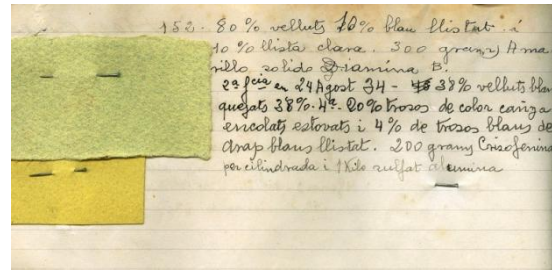 152 - 80% velluts 10% blau llistat i
10% llista clara. 300 grams Ama
rillo solido Diamina B.
2ª fcia en 24 Agost 34 - 38% velluts blan
quejats 38% 4ª - 20% trosos de color canya
encolats estovats i 4% de trosos blaus de
drap blaus llistat. 200 grams Crisofenina
per cilindrada i 1 Kilo sulfat alumina